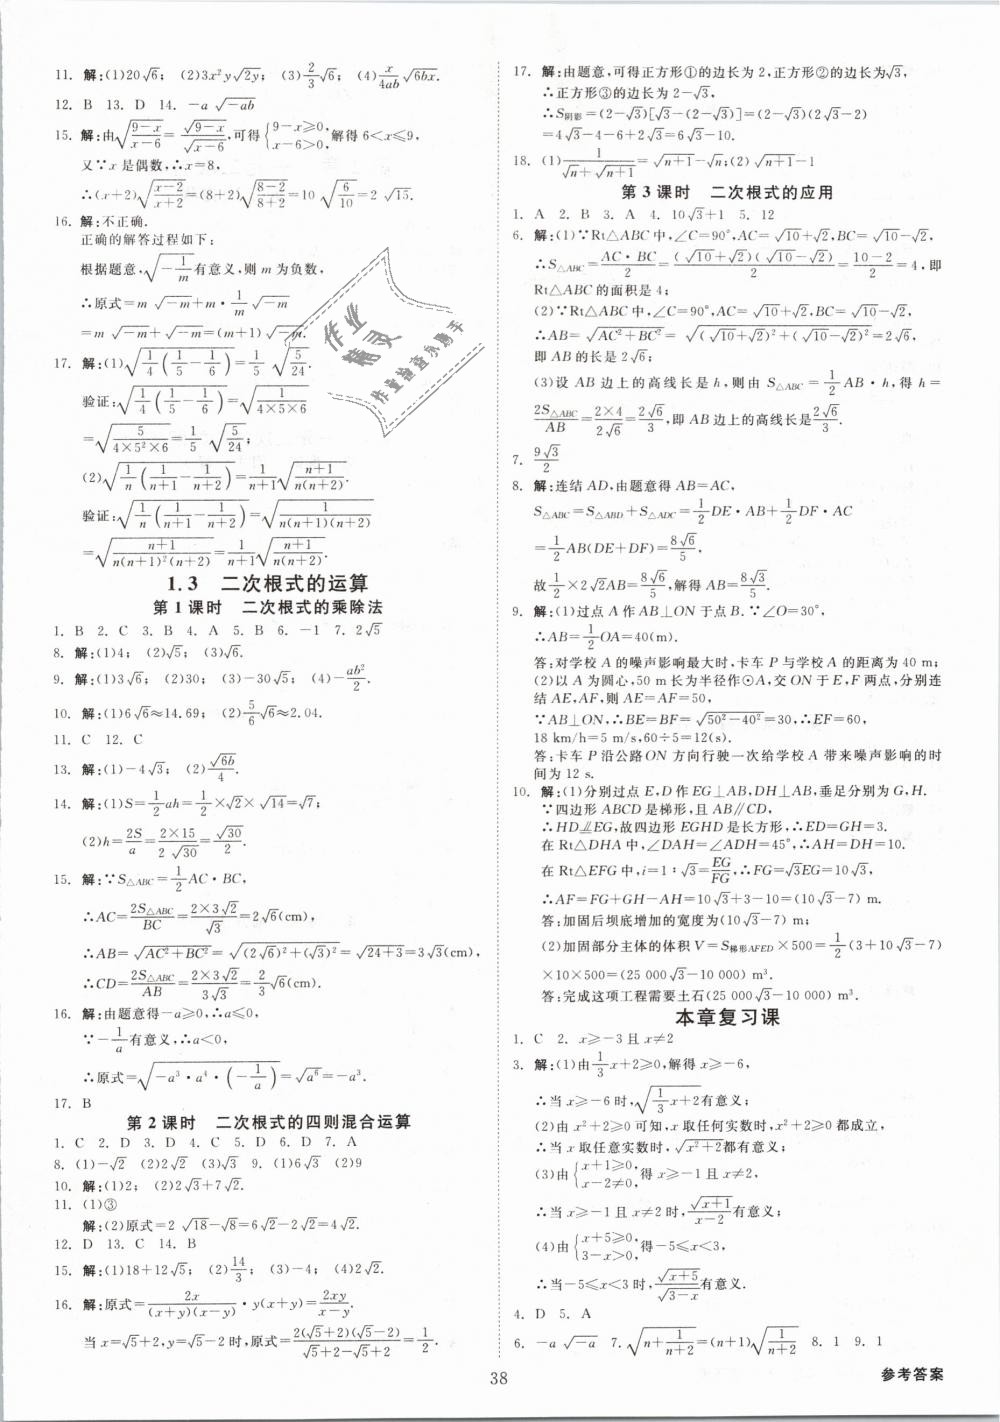 11. 解:(1)20√6; (2)3x²y√(2y); (3)2/3√6; (4)x/(4ab)√(6bx).
12. B 13. D 14. -a√(-ab)
15. 解:由√((9-x)/(x-6))=√(9-x)/√(x-6),可得{9-x≥0, x-6>0,解得6<x≤9,
又∵x是偶数,∴x=8,
∴(x+2)√((x-2)/(x+2))=(8+2)√((8-2)/(8+2))=10√(6/10)=2√15.
16. 解:不正确.
正确的解答过程如下:
根据题意,√(-1/m)有意义,则m为负数,
∴原式=m√(-m)+m·1/m√(-m)
=m√(-m)+√(-m)=(m+1)√(-m).
17. 解:(1)√(1/4(1/5-1/6))=1/5√(5/24).
验证:√(1/4(1/5-1/6))=√(1/(4×5×6))
=√(5/(4×5²×6))=1/5√(5/24);
(2)√(1/n(1/(n+1)-1/(n+2)))=1/(n+1)√((n+1)/(n(n+2))).
验证:√(1/n(1/(n+1)-1/(n+2)))=√(1/(n(n+1)(n+2)))
=√((n+1)/(n(n+1)²(n+2)))=1/(n+1)√((n+1)/(n(n+2))).
1.3 二次根式的运算
第1课时 二次根式的乘除法
1. B 2. C 3. B 4. A 5. B 6. -1 7. 2√5
8. 解:(1)4; (2)√5; (3)√6.
9. 解:(1)3√6; (2)30; (3)-30√5; (4)-ab²/2.
10. 解:(1)6√6≈14.69; (2)5/6√6≈2.04.
11. C 12. C
13. 解:(1)-4√3; (2)√(6b)/4.
14. 解:(1)S=1/2ah=1/2×√2×√14=√7;
(2)h=2S/a=2×15/2√30=√30/2.
15. 解:∵S△ABC=1/2AC·BC,
∴AC=2S△ABC/BC=2×3√2/√3=2√6(cm),
∴AB=√(AC²+BC²)=√((2√6)²+(√3)²)=√(24+3)=3√3(cm),
∴CD=2S△ABC/AB=2×3√2/3√3=2/3√6(cm).
16. 解:由题意得-a≥0,∴a≤0,
∵-1/a有意义,∴a<0,
∴原式=√(-a³·a⁴·(-1/a))=√(a⁶)=-a³.
17. B
第2课时 二次根式的四则混合运算
1. C 2. D 3. D 4. C 5. D 6. D 7. A
8. (1)-√2 (2)2√2 (3)√3 9. (1)6√3 (2)9
10. 解:(1)2; (2)2√3+7√2.
11. (1)③
解:(2)原式=2√18-√8=6√2-2√2=4√2.
12. D 13. C 14. B
15. 解:(1)18+12√5; (2)14/3; (3)-4; (4)2√2.
16. 解:原式=2x/((x+y)(x-y))·y(x+y)=2xy/(x-y).
当x=√5+2,y=√5-2时,原式=2(√5+2)(√5-2)/(√5+2-√5+2)=1/2.
17. 解:由题意,可得正方形①的边长为2,正方形②的边长为√3,
∴正方形③的边长为2-√3,
∴S阴影=(2-√3)[√3-(2-√3)]=(2-√3)(2√3-2)
=4√3-4-6+2√3=6√3-10.
18. (1)1/(√n+√(n+1))=√(n+1)-√n;(2)√(n+1)-1
第3课时 二次根式的应用
1. A 2. B 3. A 4. 10√3+1 5. 12
6. 解:(1)∵Rt△ABC中,∠C=90°,AC=√10+√2,BC=√10-√2,
∴S△ABC=AC·BC/2=(√10+√2)(√10-√2)/2=(10-2)/2=4,即
Rt△ABC的面积是4;
(2)∵Rt△ABC中,∠C=90°,AC=√10+√2,BC=√10-√2,
∴AB=√(AC²+BC²)=√((√10+√2)²+(√10-√2)²)=2√6,
即AB的长是2√6;
(3)设AB边上的高线长是h,则由S△ABC=1/2AB·h,得h=
2S△ABC/AB=2×4/2√6=2√6/3,即AB边上的高线长是2√6/3.
7. 9√3/2
8. 解:连结AD,由题意得AB=AC,
S△ABC=S△ABD+S△ADC=1/2DE·AB+1/2DF·AC
=1/2AB(DE+DF)=8√6/5,
故1/2×2√2AB=8√6/5,解得AB=8√3/5.
9. 解:(1)过点A作AB⊥ON于点B.∵∠O=30°,
∴AB=1/2OA=40(m).
答:对学校A的噪声影响最大时,卡车P与学校A的距离为40 m;
(2)以A为圆心,50 m长为半径作⊙A,交ON于E,F两点,分别连
结AE,AF,则AE=AF=50,
∵AB⊥ON,∴BE=BF=√(50²-40²)=30,∴EF=60,
18 km/h=5 m/s,60÷5=12(s).
答:卡车P沿公路ON方向行驶一次给学校A带来噪声影响的时
间为12 s.
10. 解:(1)分别过点E,D作EG⊥AB,DH⊥AB,垂足分别为G,H.
∵四边形ABCD是梯形,且AB∥CD,
∴HD⫫EG,故四边形EGHD是长方形,∴ED=GH=3.
在Rt△DHA中,∠DAH=∠ADH=45°,∴AH=DH=10.
在Rt△EFG中,i=1∶√3=EG/FG,∴FG=√3EG=10√3,
∴AF=FG+GH-AH=10√3+3-10=(10√3-7) m.
答:加固后坝底增加的宽度为(10√3-7) m;
(2)加固部分主体的体积V=S梯形AFED×500=1/2(3+10√3-7)
×10×500=(25 000√3-10 000) m³.
答:完成这项工程需要土石(25 000√3-10 000) m³.
本章复习课
1. C 2. x≥-3且x≠2
3. 解:(1)由1/3x+2≥0,解得x≥-6,
∴当x≥-6时,√(1/3x+2)有意义;
(2)由x²+2≥0可知,x取任何实数时,x²+2≥0都成立,
∴当x取任意实数时,√(x²+2)都有意义;
(3)由{x+1≥0, x-2≠0,得x≥-1且x≠2,
∴当x≥-1且x≠2时,√(x+1)/(x-2)有意义;
(4)由{x+5≥0, 3-x>0,得-5≤x<3,
∴当-5≤x<3时,√(x+5)/√(3-x)有意义.
4. D 5. A
6. -a√(-a) 7. √(n+1/(n+2))=(n+1)√(1/(n+2)) 8. 1 9. 1
38
参考答案
作业
精灵
作业检查小助手